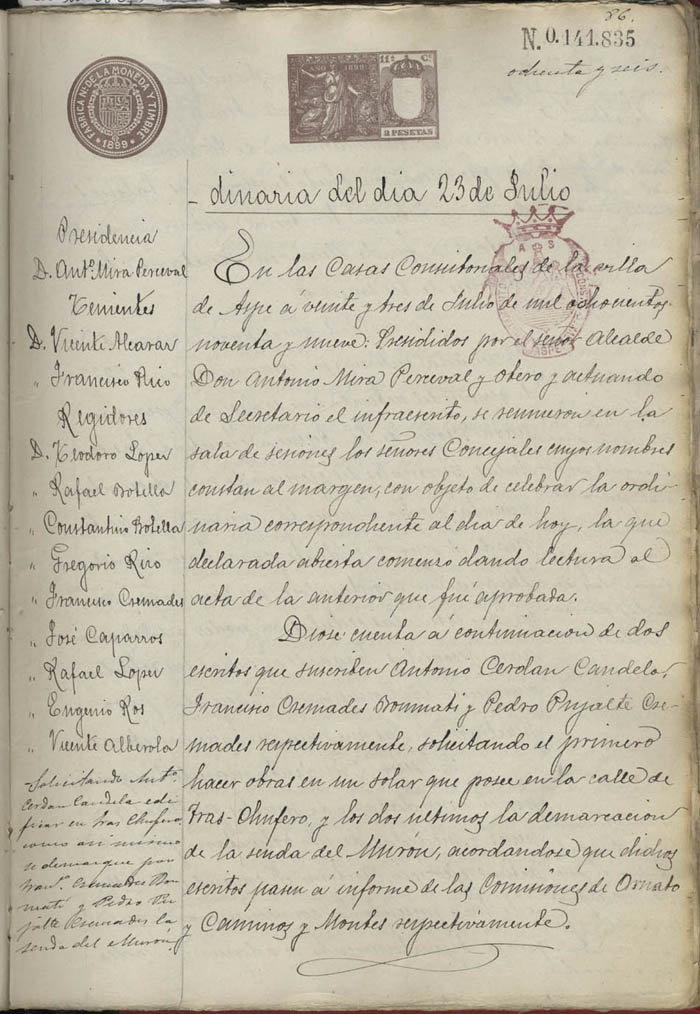 86.
N. 0.141.835
ochenta y seis.
FABRICA Nal. DE LA MONEDA Y TIMBRE
* 1899 *
AÑO 1899
11ª Cª
2 PESETAS
- dinaria del dia 23 de Julio
Presidencia
D. Antº. Mira Perceval
Tenientes
D. Vicente Alcaraz
" Francisco Rico
Regidores
D. Teodoro Lopez
" Rafael Botella
" Constantino Botella
" Gregorio Rizo
" Francisco Cremades
" José Caparros
" Rafael Lopez
" Eugenio Ros
" Vicente Alberola
-Solicitando Antº.
Cerdan Candela edi-
ficar en tras Chufero
como asi mismo
se demarque por
Fran. Cremades Bon-
mati y Pedro Pu-
jalte Cremades la
senda del Murón,
En las Casas Consistoriales de la villa
de Aspe á veinte y tres de Julio de mil ochocientos
noventa y nueve: Presididos por el señor Alcalde
Don Antonio Mira Perceval y Otero y actuando
de Secretario el infraescrito, se reunieron en la
sala de sesiones los señores Concejales cuyos nombres
constan al margen, con objeto de celebrar la ordi-
naria correspondiente al dia de hoy, la que
declarada abierta comenzó dando lectura al
acta de la anterior que fué aprobada.
Diose cuenta á continuacion de dos
escritos que suscriben Antonio Cerdan Candela,
Francisco Cremades Bonmati y Pedro Pujalte Cre-
mades respectivamente, solicitando el primero
hacer obras en un solar que posee en la calle de
Tras-Chufero, y los dos ultimos la demarcacion
de la senda del Murón, acordandose que dichos
escritos pasen á informe de las Comisiones de Ornato
y Caminos y Montes respectivamente.